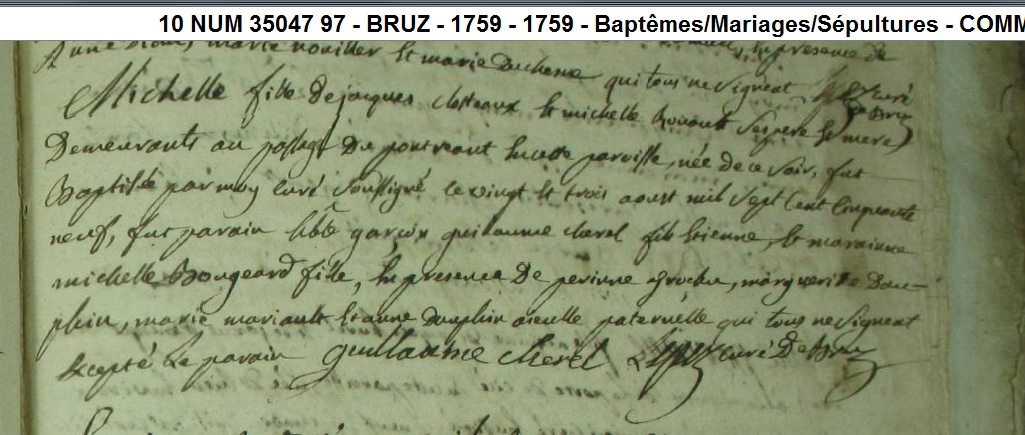 10 NUM 35047 97 - BRUZ - 1759 - 1759 - Baptêmes/Mariages/Sépultures - COMM
marie nouiller Et marie Duchene qui tous ne signent, curé de Bruz
Michelle fille de jacques Et michelle Rouault ses pere Et mere
Demeurants au passage Du pontreant En cette paroisse, née de ce soir, fut
Baptisée par moy curé soussigné le vingt Et trois aoust mil sept Cent Cinquante
neuf, fut parain garçon guillaume cherel fils Etienne, Et maraine
michelle Bougeard fille, En presence De perinne marguerite Dau-
phin, marie mariault Et anne dauphin aieulle paternelle qui tous ne signent
Excepté Le parain guillaume cherel curé De Bruz